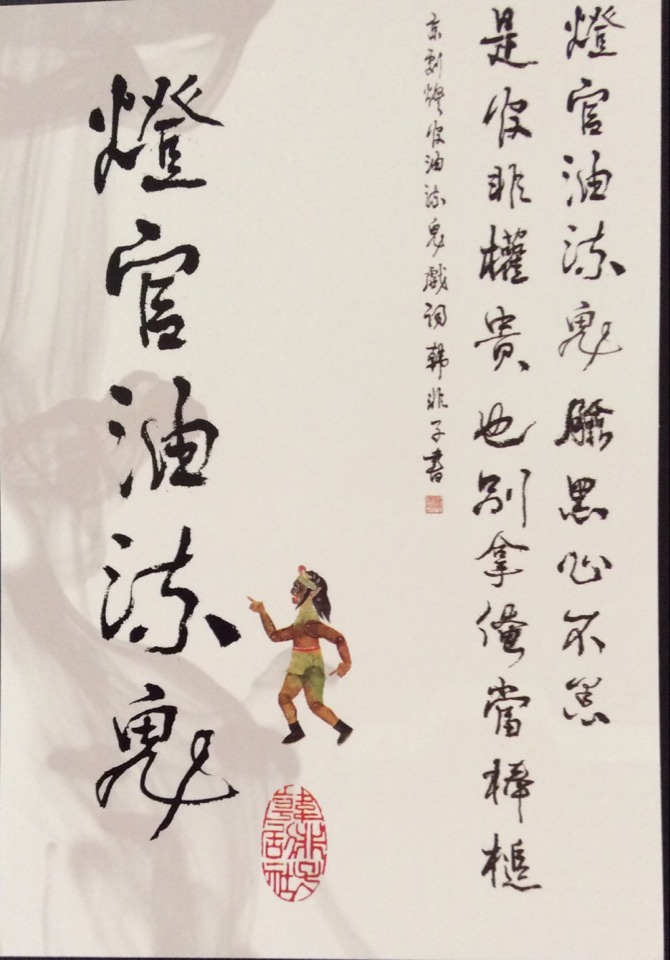 燈官油流鬼臉黑心不黑
是官非權貴也別拿俺當棒槌
京劇燈官油流鬼戲詞韩非子書
燈官油流鬼